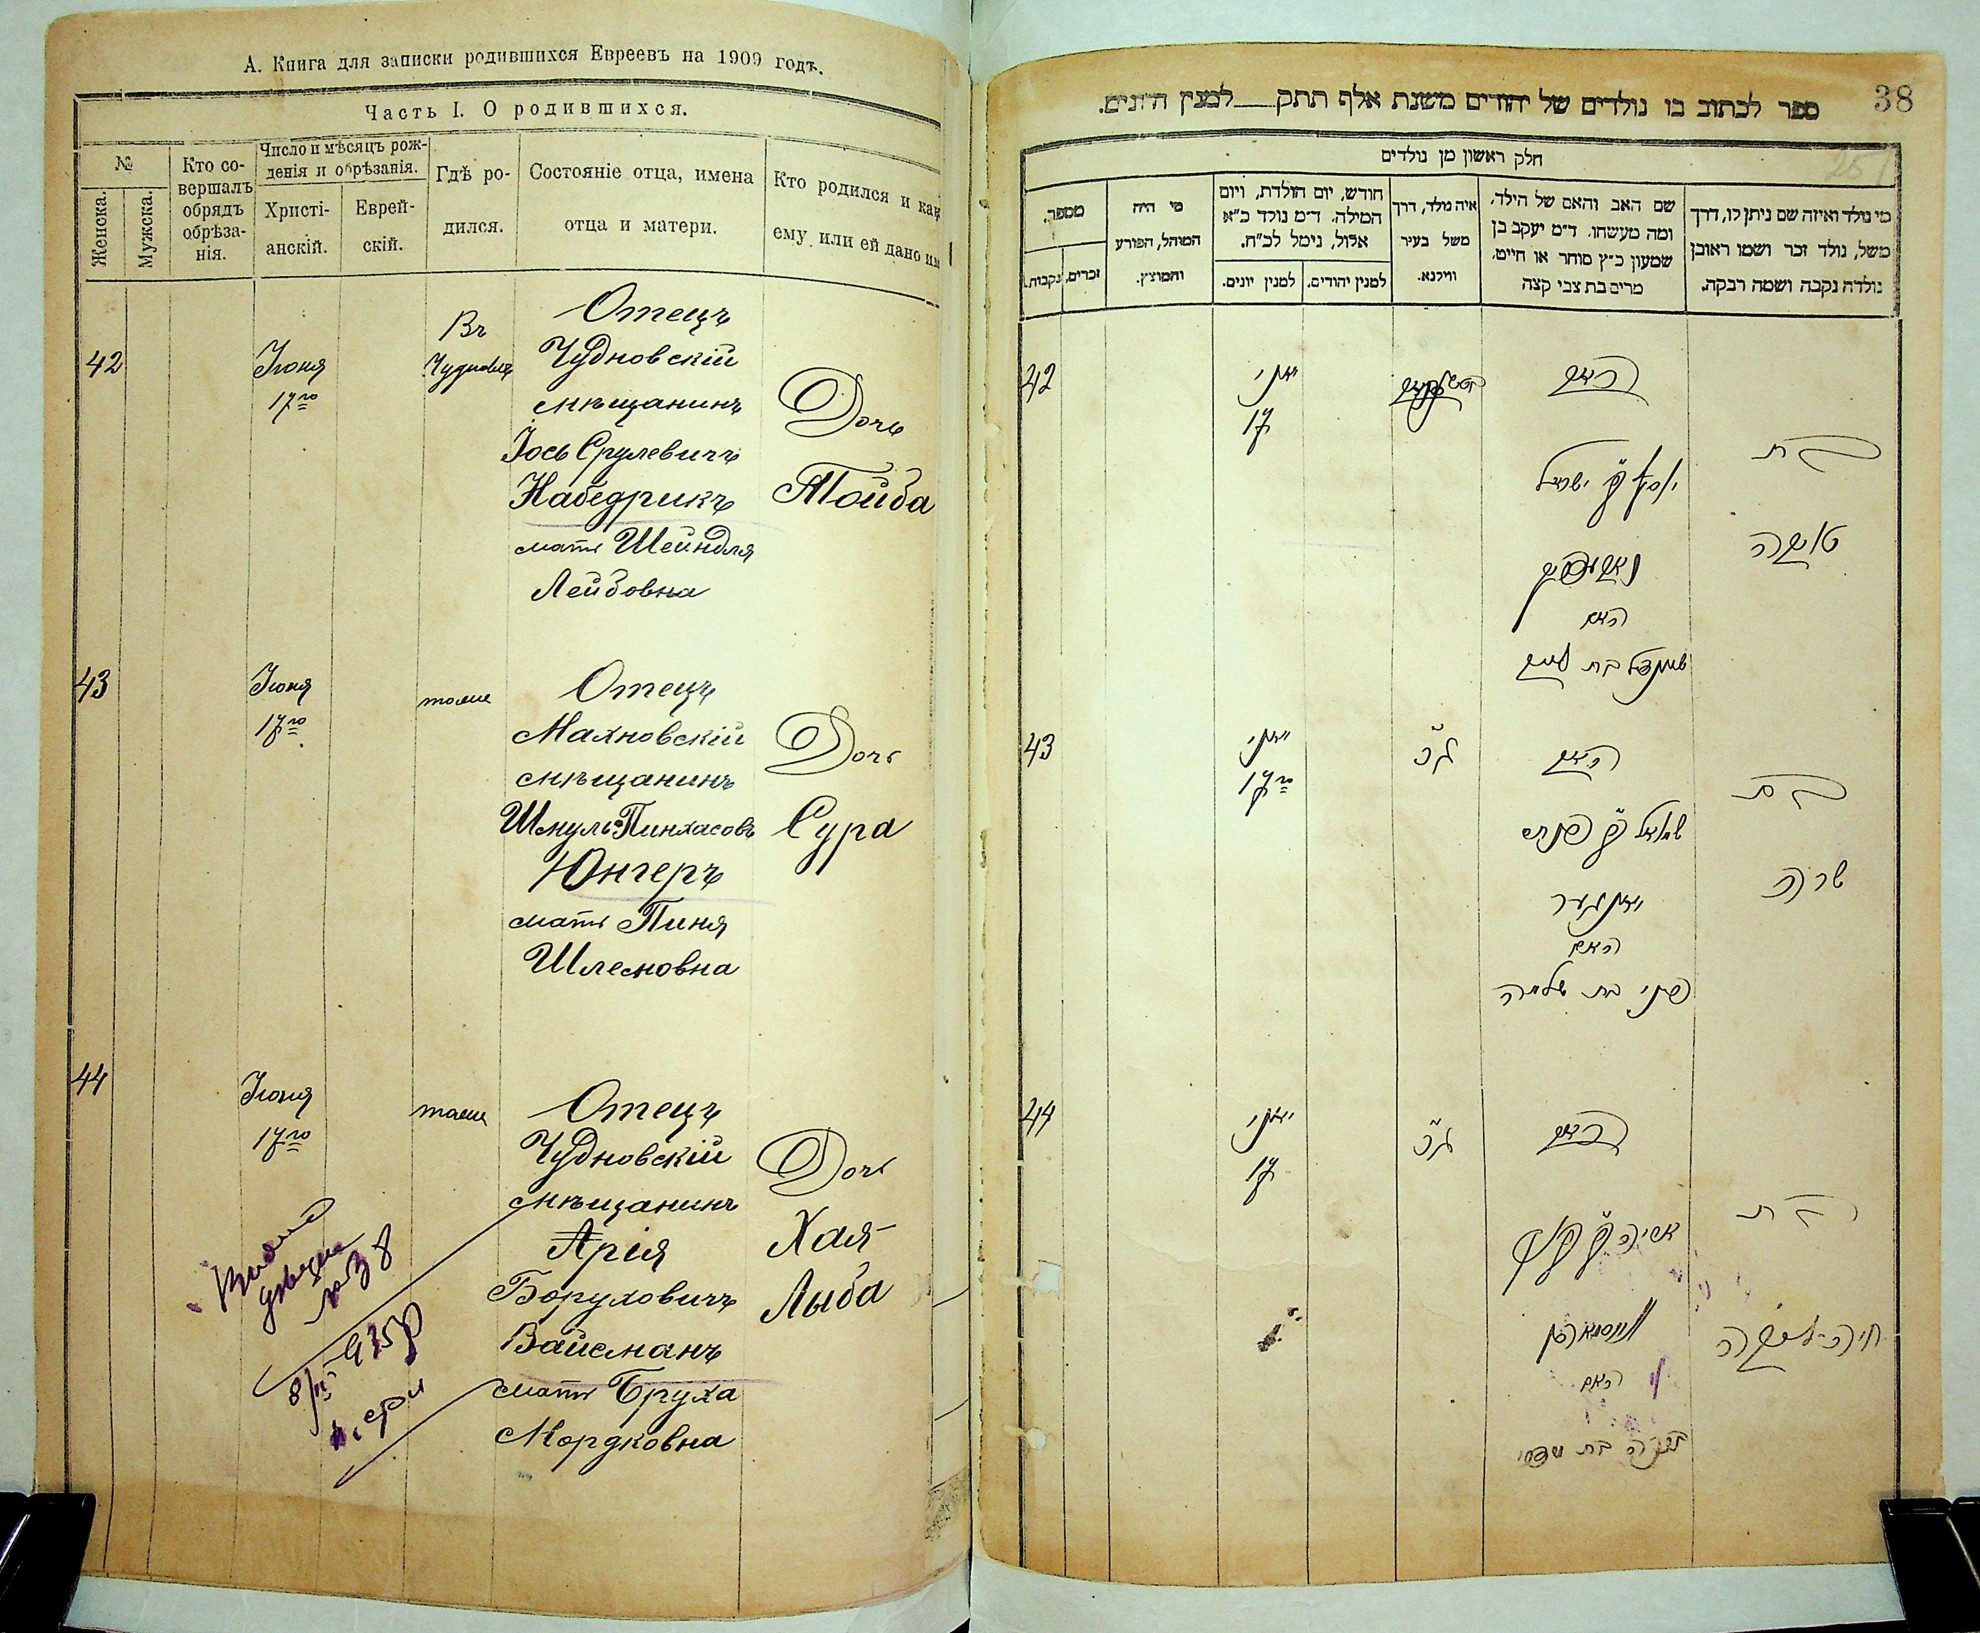 А. Книга для записки родившихся Евреевъ на 1909 годъ.
Часть I. О родившихся.
№
Женска.
Мужска.
Кто со-
вершалъ
обрядъ
обрѣза-
нія.
Число и мѣсяцъ рож-
денія и обрѣзанія.
Христі-
анскій.
Еврей-
скій.
Гдѣ ро-
дился.
Состояніе отца, имена
отца и матери.
Кто родился и как
ему или ей дано им
42
Іюня
17го
Въ
Чудновѣ
Отецъ
Чудновскій
мѣщанинъ
Іось Срулевичъ
Набедрикъ
мать Шейндля
Лейбовна
Дочь
Тойба
43
Іюня
17го
тоже
Отецъ
Махновскій
мѣщанинъ
Шмуль-Пинхасовъ
Юнгеръ
мать Пиня
Шлемовна
Дочь
Сура
44
Іюня
17го
тоже
Отецъ
Чудновскій
мѣщанинъ
Арія
Боруховичъ
Вайсманъ
мать Бруха
Мордковна
Дочь
Хая-
Лыба
38
ספר לכתוב בו נולדים של יהודים משנת אלף תתק למנין היונים.
חלק ראשון מן נולדים
מי נולד ואיזה שם ניתן לו, דרך
משל, נולד זכר ושמו ראובן
נולדה נקבה ושמה רבקה.
שם האב והאם של הילד,
ומה מעשהו. ד״מ יעקב בן
שמעון כ״ץ סוחר או חייט,
מרים בת צבי קצה
איה נולד, דרך
משל בעיר
ווילנא.
חודש, יום הולדת, ויום
המילה. ד״מ נולד כ״א
אלול, נימל לכ״ח.
למנין יהודים.
למנין יונים.
מי היה
המוהל, הפורע
והמוצץ.
מספר.
זכרים,
נקבות.
42
יוני
17
האב
יוסף ב״ר ישראל
האם
שיינדיל בת לייב
בת
טויבה
43
יוני
17го
האב
שמואל ב״ר פנחס
יונגער
האם
פיני בת שלמה
בת
שרה
44
יוני
17
האב
ווייסמאן
האם
ברכה בת מרדכי
בת
חיה-ליבה